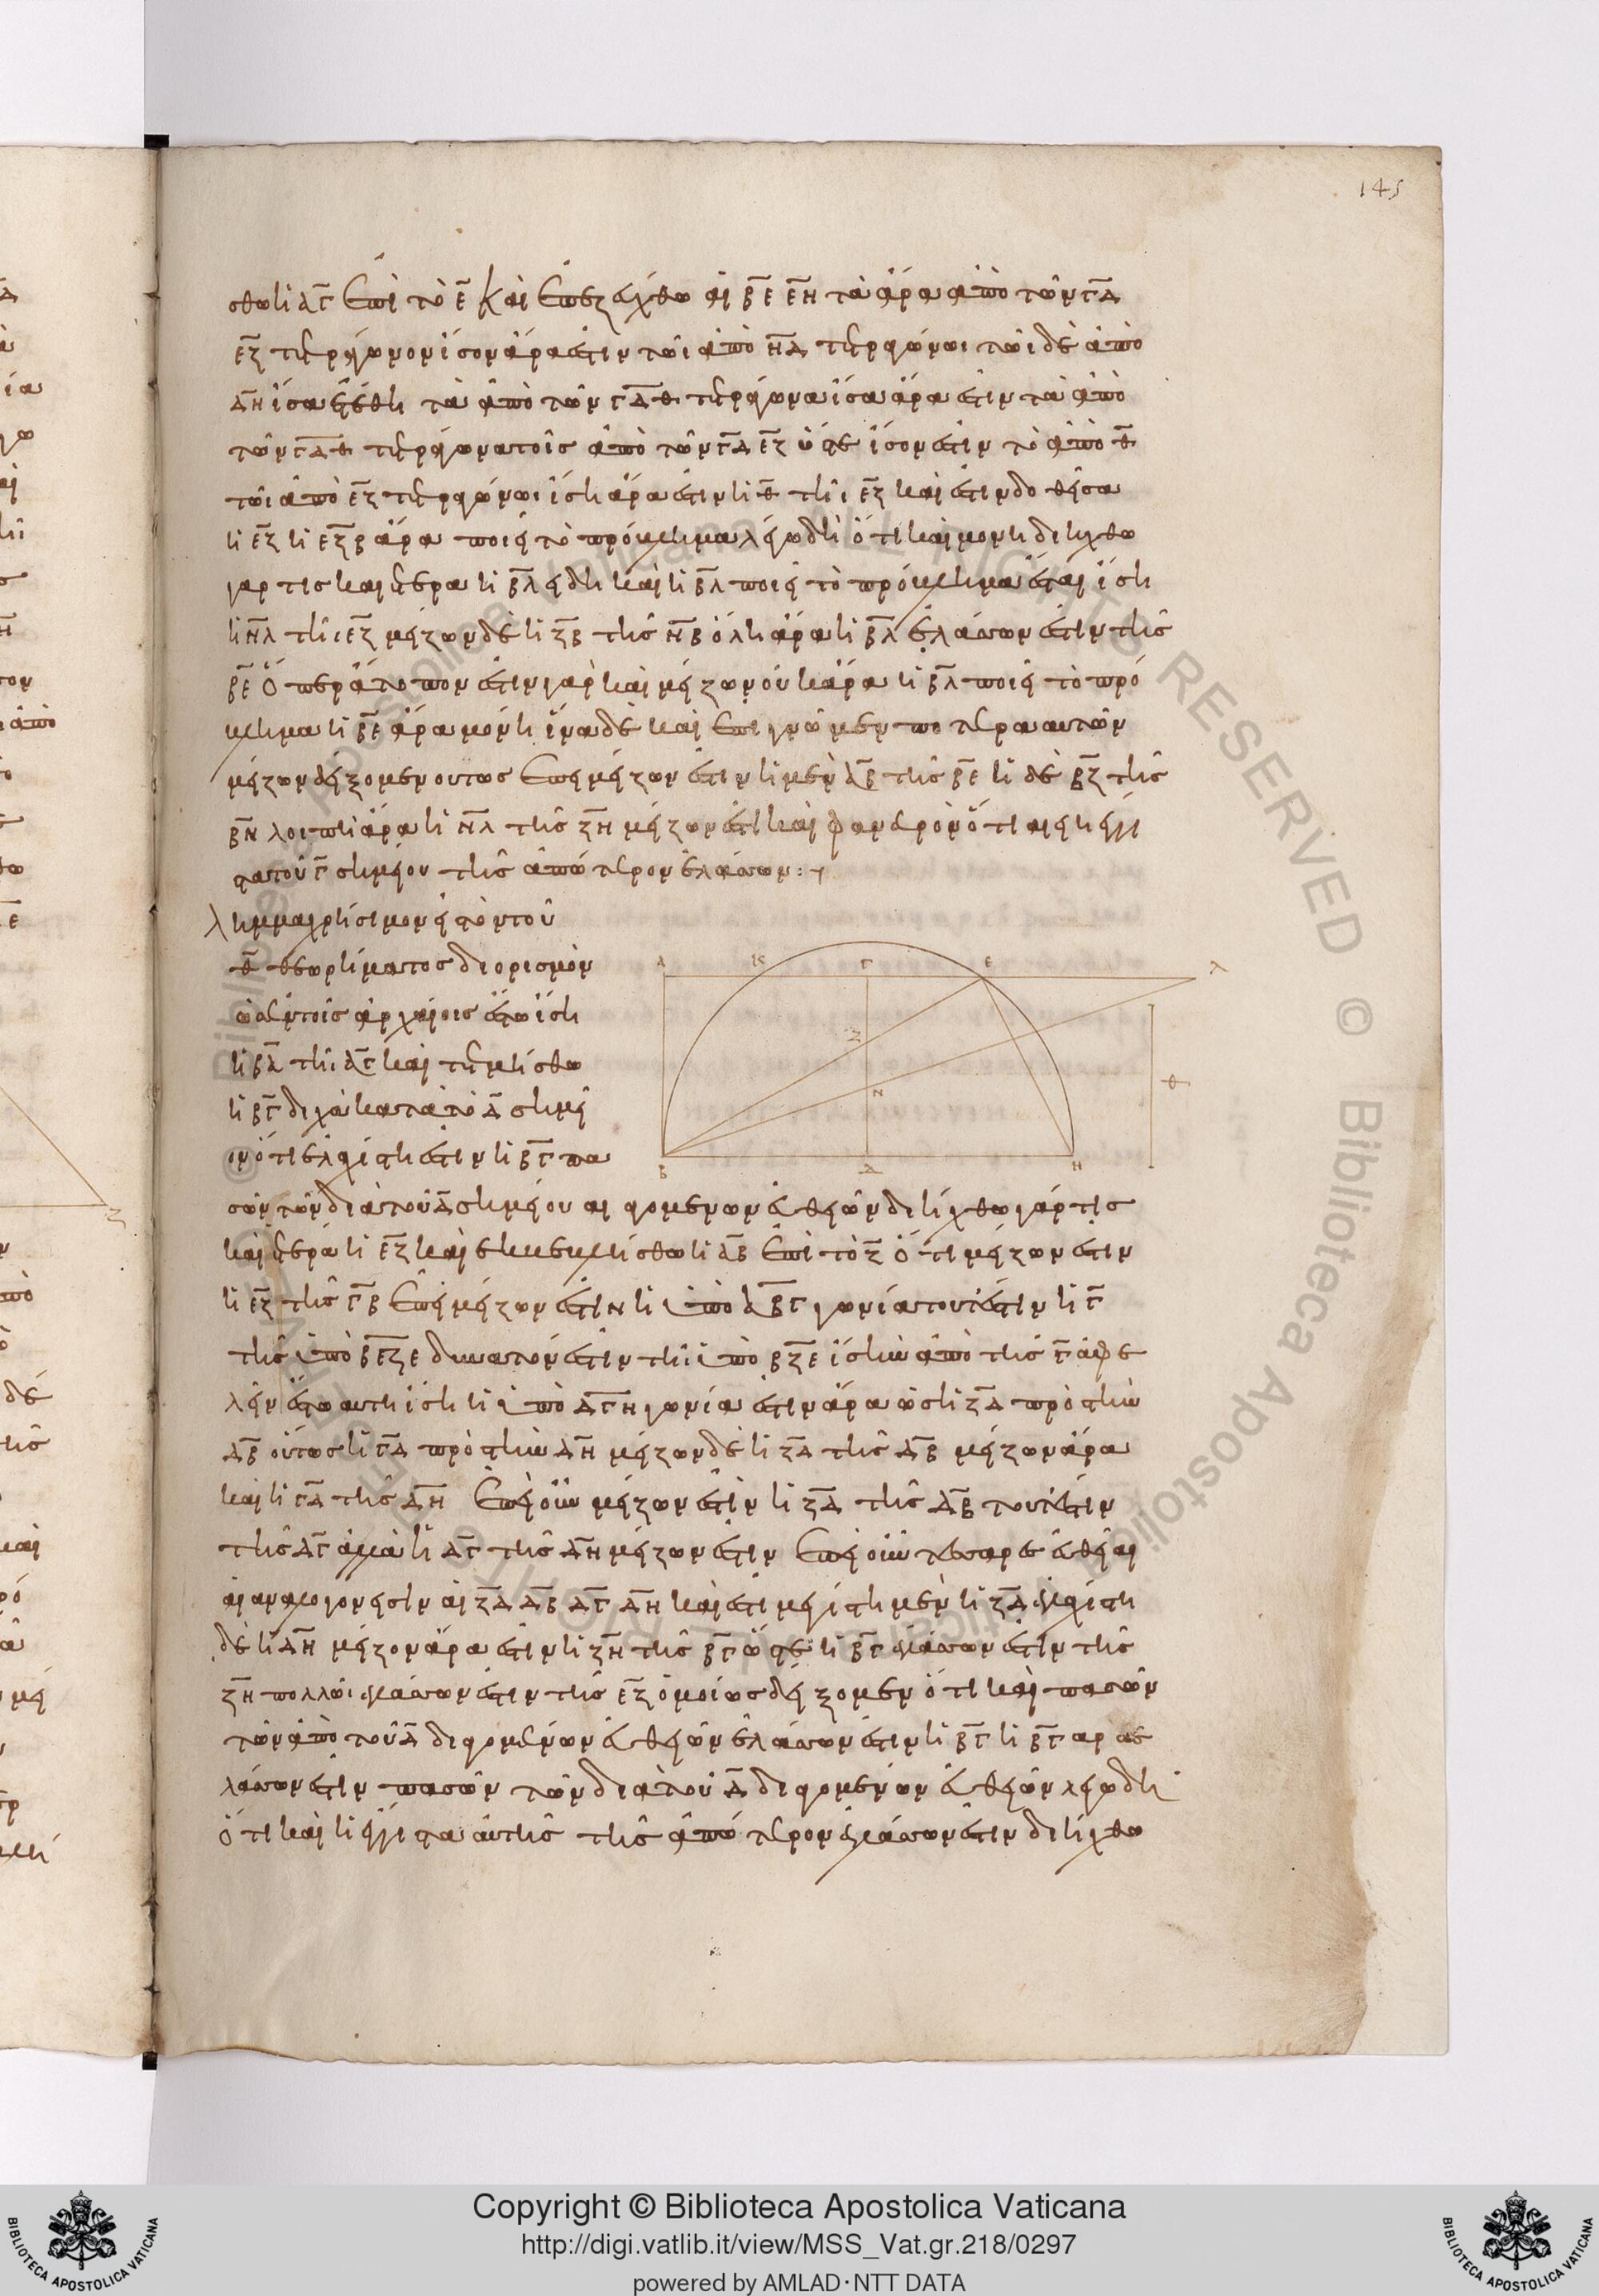 145
σθω ἡ ΑΓ ἐπὶ τὸ Ε καὶ ἐπεζεύχθωσαν αἱ ΒΕ ΕΗ τὰ ἄρα ἀπὸ τῶν ΓΔ
ΕΖ τετράγωνον ἴσον ἄρα ἐστὶν τῶι ἀπὸ ΗΔ τετραγώνωι τῶι δὲ ἀπὸ
ΔΗ ἴσα ἐτέθη τὰ ἀπὸ τῶν ΓΔ Θ τετράγωνα ἴσα ἄρα ἐστὶν τὰ ἀπὸ
τῶν ΓΔ Θ τετράγωνα τοῖς ἀπὸ τῶν ΓΔ ΕΖ ὥστε ἴσον ἐστὶν τὸ ἀπὸ Θ
τῶι ἀπὸ ΕΖ τετραγώνωι ἴση ἄρα ἐστὶν ἡ Θ τῆι ΕΖ καί ἐστιν δοθεῖσα
ἡ ΕΖ ἡ ΕΖΒ ἄρα ποιεῖ τὸ πρόβλημα λέγω δὴ ὅτι καὶ μόνη διήχθω
γάρ τις καὶ ἑτέρα ἡ ΒΛ εἰ δὴ καὶ ἡ ΒΛ ποιεῖ τὸ πρόβλημα ἔσται ἴση
ἡ ΝΛ τῆι ΕΖ μείζων δὲ ἡ ΖΒ τῆς ΝΒ ὅλη ἄρα ἡ ΒΛ ἐλάσσων ἐστὶν τῆς
ΒΕ ὅπερ ἄτοπον ἔστιν γὰρ καὶ μείζων οὐκ ἄρα ἡ ΒΛ ποιεῖ τὸ πρό
βλημα ἡ ΒΕ ἄρα μόνη ἵνα δὲ καὶ ἐπιγνῶμεν ποτέρα αὐτῶν
μείζων δείξομεν οὕτως ἐπεὶ μείζων ἐστὶν ἡ μὲν ΛΒ τῆς ΒΕ ἡ δὲ ΒΖ τῆς
ΒΝ λοιπὴ ἄρα ἡ ΝΛ τῆς ΖΗ μείζων ἐστὶ καὶ φανερὸν ὅτι αἰεὶ ἡ ἔγγι
στα τοῦ Γ σημείου τῆς ἀπώτερον ἐλάσσων
Λῆμμα χρήσιμον εἰς τὸν τοῦ
Θ θεωρήματος διορισμόν
τοῖς ἀρχαίοις ἔστω ἴση
ἡ ΒΑ τῆι ΑΓ καὶ τετμήσθω
ἡ ΒΓ δίχα κατὰ τὸ Δ σημεῖ
ον ὅτι ἐλαχίστη ἐστὶν ἡ ΒΓ πα
Α Κ Γ Ε Λ
Ζ
Ν
Θ
Β Δ Η
σῶν τῶν διὰ τοῦ Δ σημείου διαγομένων εὐθειῶν διήχθω γάρ τις
καὶ ἑτέρα ἡ ΕΖ καὶ ἐκβεβλήσθω ἡ ΑΒ ἐπὶ τὸ Ζ ὅτι μείζων ἐστὶν
ἡ ΕΖ τῆς ΓΒ ἐπεὶ μείζων ἐστὶν ἡ ὑπὸ ΑΒΓ γωνία τουτέστιν ἡ Γ
τῆς ὑπὸ ΒΖΕ δυνατόν ἐστιν τῆι ὑπὸ ΒΖΕ ἴσην ἀπὸ τῆς Γ ἀφε
λεῖν ἔστω αὐτῆι ἴση ἡ ὑπὸ ΔΓΗ γωνία ἔστιν ἄρα ὡς ἡ ΖΔ πρὸς τὴν
ΔΒ οὕτως ἡ ΓΔ πρὸς τὴν ΔΗ μείζων δὲ ἡ ΖΔ τῆς ΔΒ μείζων ἄρα
καὶ ἡ ΓΔ τῆς ΔΗ ἐπεὶ οὖν μείζων ἐστὶν ἡ ΖΔ τῆς ΔΒ τουτέστιν
τῆς ΔΓ ἀλλὰ ἡ ΔΓ τῆς ΔΗ μείζων ἐστὶν ἐπεὶ οὖν τέσσαρες εὐθεῖαι
ἀνάλογόν εἰσιν αἱ ΖΔ ΔΒ ΔΓ ΔΗ καί ἐστι μεγίστη μὲν ἡ ΖΔ ἐλαχίστη
δὲ ἡ ΔΗ μείζον ἄρα ἐστὶν ἡ ΖΗ τῆς ΒΓ ὥστε ἡ ΒΓ ἐλάσσων ἐστὶν τῆς
ΖΗ πολλῶι ἐλάσσων ἐστὶν τῆς ΕΖ ὁμοίως δείξομεν ὅτι καὶ πασῶν
τῶν ἀπὸ τοῦ Δ διαγομένων εὐθειῶν ἐλάσσων ἐστὶν ἡ ΒΓ ἡ ΒΓ ἄρα ἐ
λάσσων ἐστὶν πασῶν τῶν διὰ τοῦ Δ διαγομένων εὐθειῶν λέγω δὴ
ὅτι καὶ ἡ ἔγγιστα αὐτῆς τῆς ἀπώτερον ἐλάσσων ἐστὶν διήχθω
© Biblioteca Apostolica Vaticana ALL RIGHTS RESERVED © Biblioteca Apostolica Vaticana
Copyright © Biblioteca Apostolica Vaticana
http://digi.vatlib.it/view/MSS_Vat.gr.218/0297
powered by AMLAD·NTT DATA
BIBLIOTECA APOSTOLICA VATICANA
BIBLIOTECA APOSTOLICA VATICANA